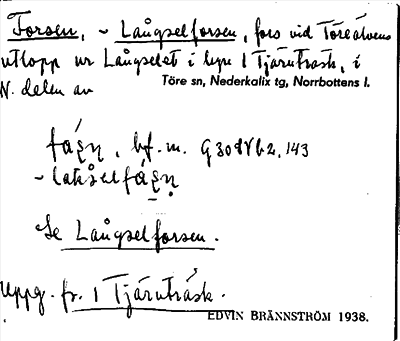 Forsen, ~ Långselforsen, fors vid Töreälvens
utlopp ur Långselet i byn 1 Tjärnträsk, i
N. delen av
Töre sn, Nederkalix tg, Norrbottens l.
bf. m.
Se Långselforsen.
Uppg. fr. 1 Tjärnträsk.
EDVIN BRÄNNSTRÖM 1938.